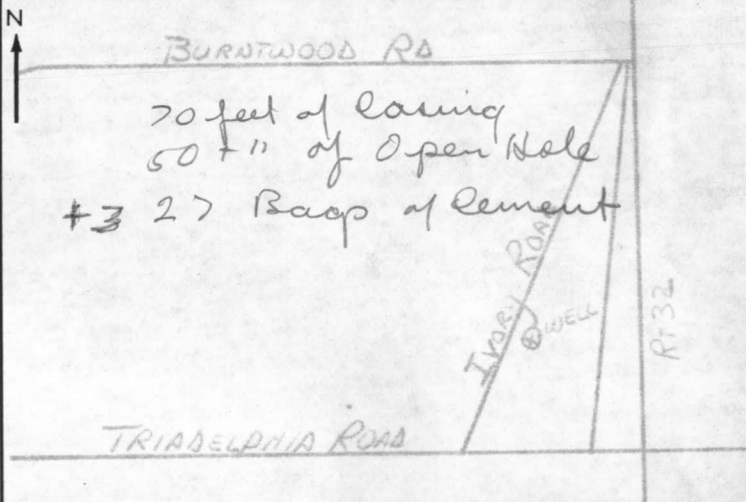 N
BURNTWOOD RD
70 feet of Casing
50 + " of Open Hole
+3 27 Bags of Cement
IVORY ROAD
WELL
RT 32
TRIADELPHIA ROAD